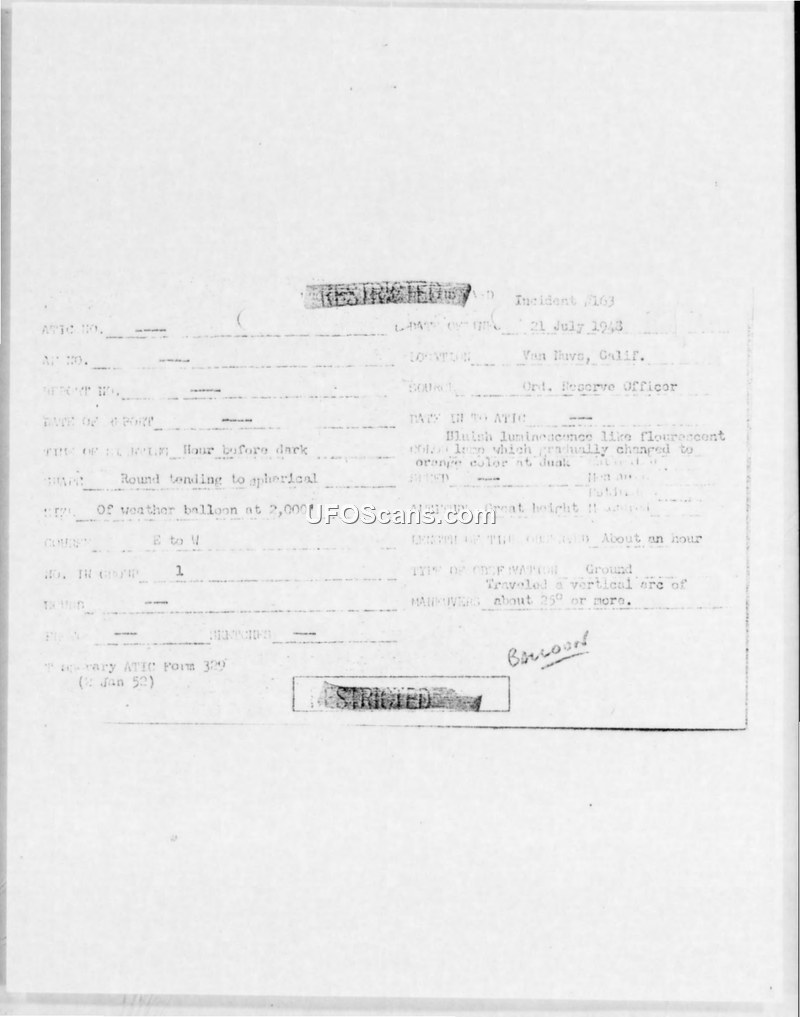 RESTRICTED
Incident #163
ATIC NO. ---- DATE OF INFO. 21 July 1948
AF NO. ---- LOCATION Van Nuys, Calif.
REPORT NO. ---- SOURCE Ord. Reserve Officer
DATE OF REPORT ---- DATE IN TO ATIC ----
Bluish luminescence like flourescent
TIME OF SIGHTING Hour before dark COLOR lamp which gradually changed to
orange color at dusk
SHAPE Round tending to spherical SPEED ----
SIZE Of weather balloon at 2,000' ALTITUDE Great height
UFOScans.com
COURSE E to W LENGTH OF TIME OBSERVED About an hour
NO. IN GROUP 1 TYPE OF OBSERVATION Ground
Traveled a vertical arc of
SOUND ---- MANEUVERS about 25° or more.
---- SKETCHES ----
Balloon!
Temporary ATIC Form 329
(2 Jan 52)
RESTRICTED